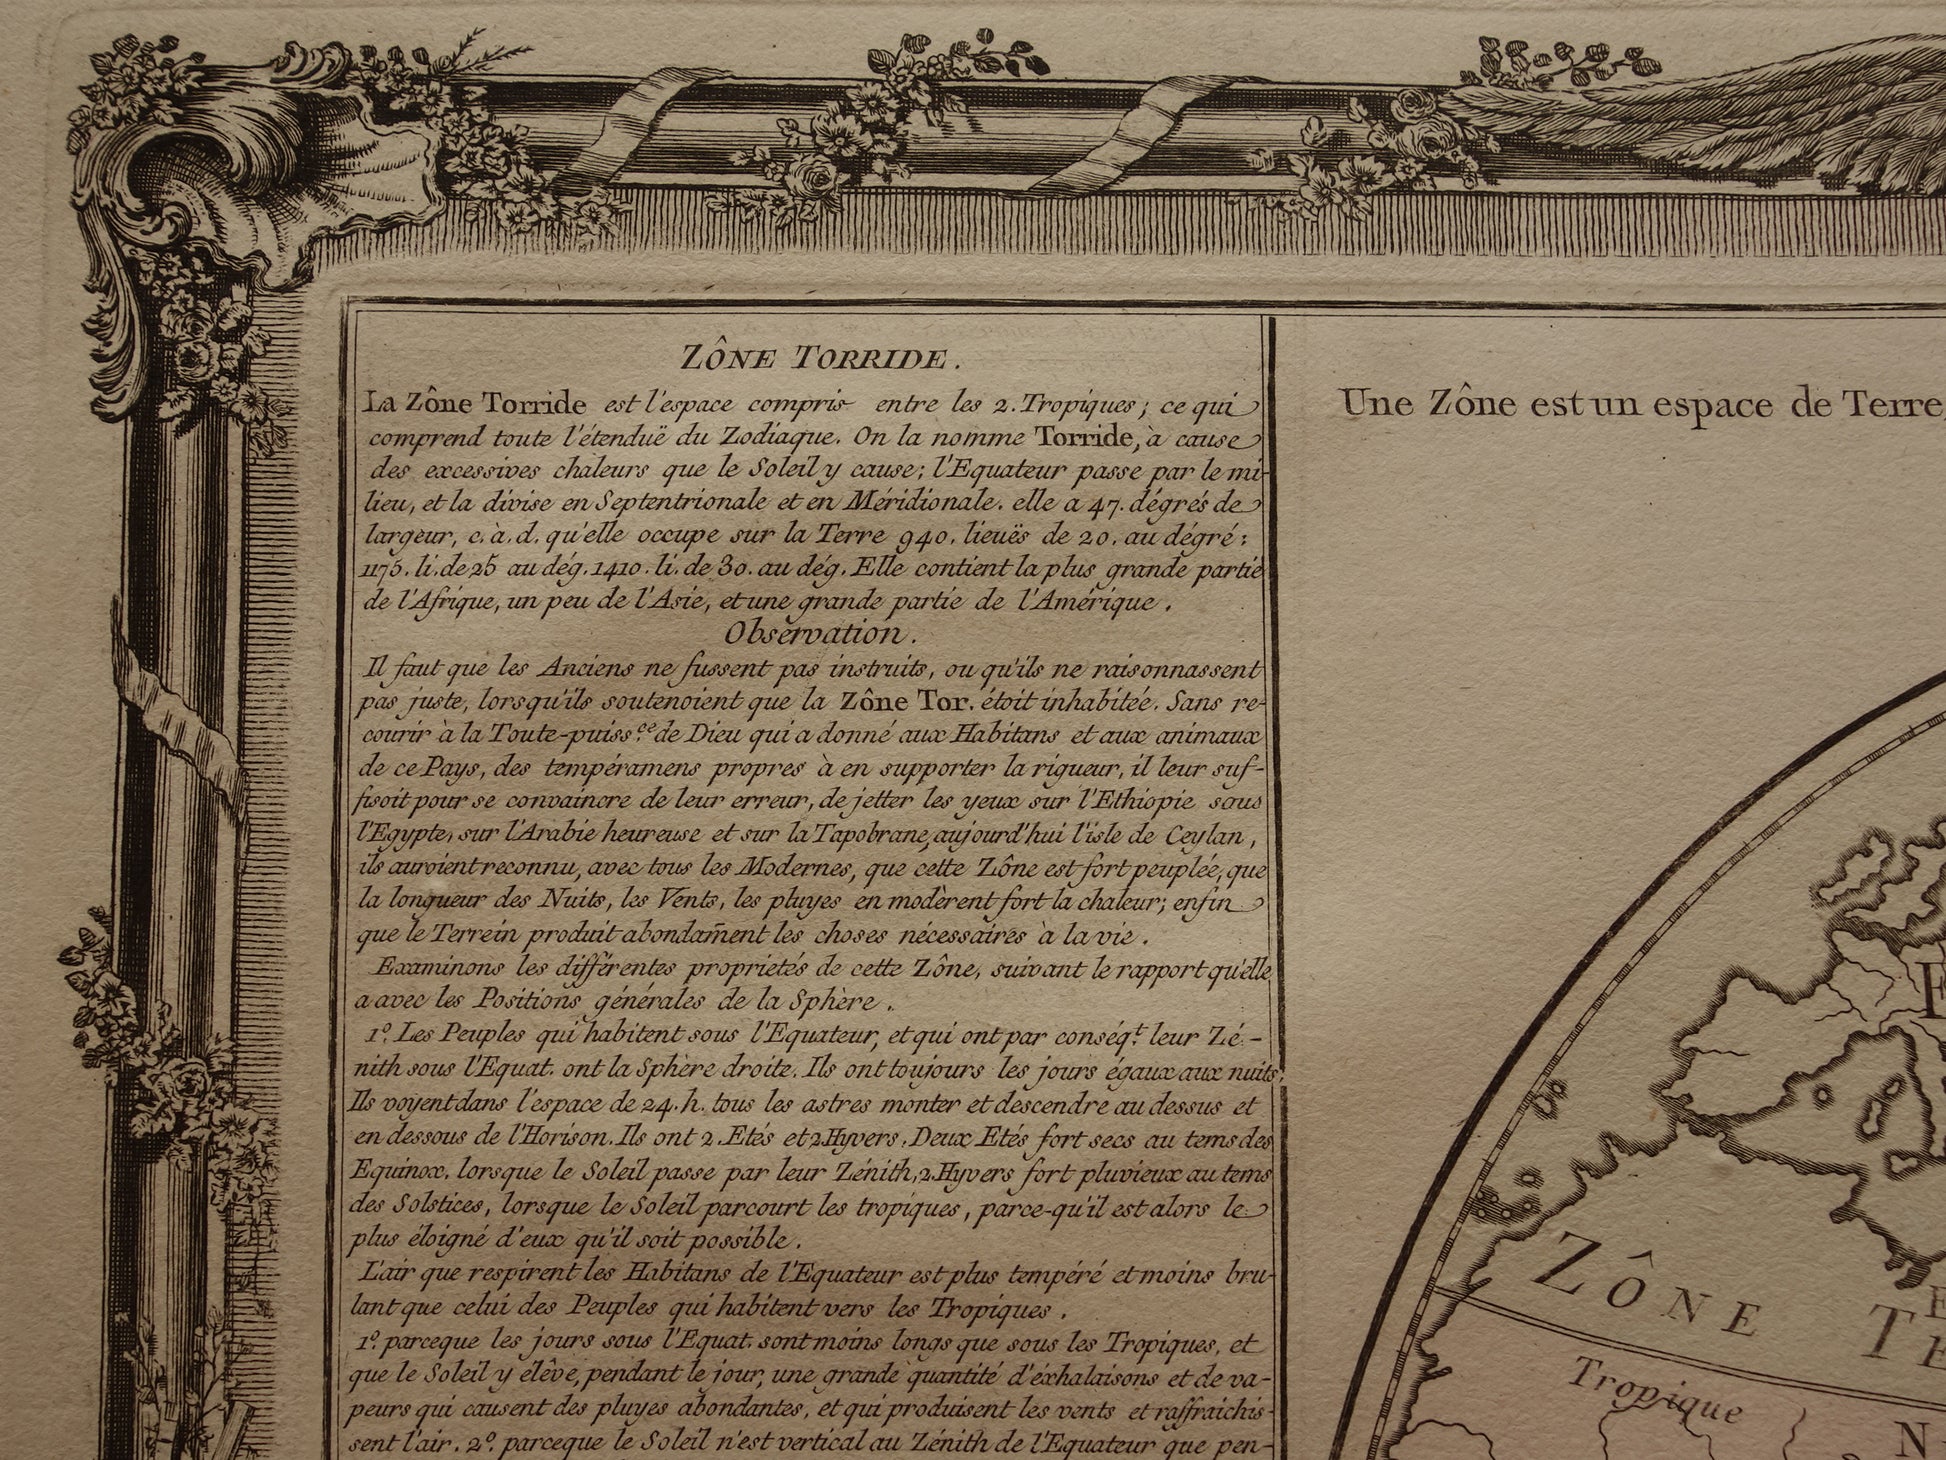 ZÔNE TORRIDE.
La Zône Torride est l'espace compris entre les 2. Tropiques; ce qui
comprend toute l'étenduë du Zodiaque. On la nomme Torride, à cause
des excessives chaleurs que le Soleil y cause; l'Equateur passe par le mi-
lieu, et la divise en Septentrionale et en Méridionale. elle a 47. dégrés de
largeur, c. à. d. qu'elle occupe sur la Terre 940. lieuës de 20. au dégré:
1175. li. de 25 au dég. 1410. li. de 30. au dég. Elle contient la plus grande partie
de l'Afrique, un peu de l'Asie, et une grande partie de l'Amérique.
Observation.
Il faut que les Anciens ne fussent pas instruits, ou qu'ils ne raisonnassent
pas juste, lorsqu'ils soutenoient que la Zône Tor. étoit inhabitée. Sans re-
courir à la Toute-puiss.ce de Dieu qui a donné aux Habitans et aux animaux
de ce Pays, des tempéramens propres à en supporter la rigueur, il leur suf-
fisoit pour se convaincre de leur erreur, de jetter les yeux sur l'Ethiopie sous
l'Egypte, sur l'Arabie heureuse et sur la Tapobrane, aujourd'hui l'isle de Ceylan,
ils auroient reconnu, avec tous les Modernes, que cette Zône est fort peuplée, que
la longueur des Nuits, les Vents, les pluyes en modèrent fort la chaleur; enfin
que le Terrein produit abondam̃ent les choses nécessaires à la vie.
Examinons les différentes proprietés de cette Zône, suivant le rapport qu'elle
a avec les Positions générales de la Sphère.
1º. Les Peuples qui habitent sous l'Equateur, et qui ont par conséq.t leur Zé-
nith sous l'Equat. ont la Sphère droite. Ils ont toujours les jours égaux aux nuits;
Ils voyent dans l'espace de 24. h. tous les astres monter et descendre au dessus et
en dessous de l'Horison. Ils ont 2. Etés et 2 Hyvers. Deux Etés fort secs au tems des
Equinox. lorsque le Soleil passe par leur Zénith, 2. Hyvers fort pluvieux au tems
des Solstices, lorsque le Soleil parcourt les tropiques, parce-qu'il est alors le
plus éloigné d'eux qu'il soit possible.
L'air que respirent les Habitans de l'Equateur est plus tempéré et moins bru-
lant que celui des Peuples qui habitent vers les Tropiques.
1º. parceque les jours sous l'Equat. sont moins longs que sous les Tropiques, et
que le Soleil y élêve, pendant le jour, une grande quantité d'éxhalaisons et de va-
peurs qui causent des pluyes abondantes, et qui produisent les vents et raffraichis-
sent l'air. 2º. parceque le Soleil n'est vertical au Zénith de l'Equateur que pen-
Une Zône est un espace de Terre,
E
ZÔNE TE
Tropique
N